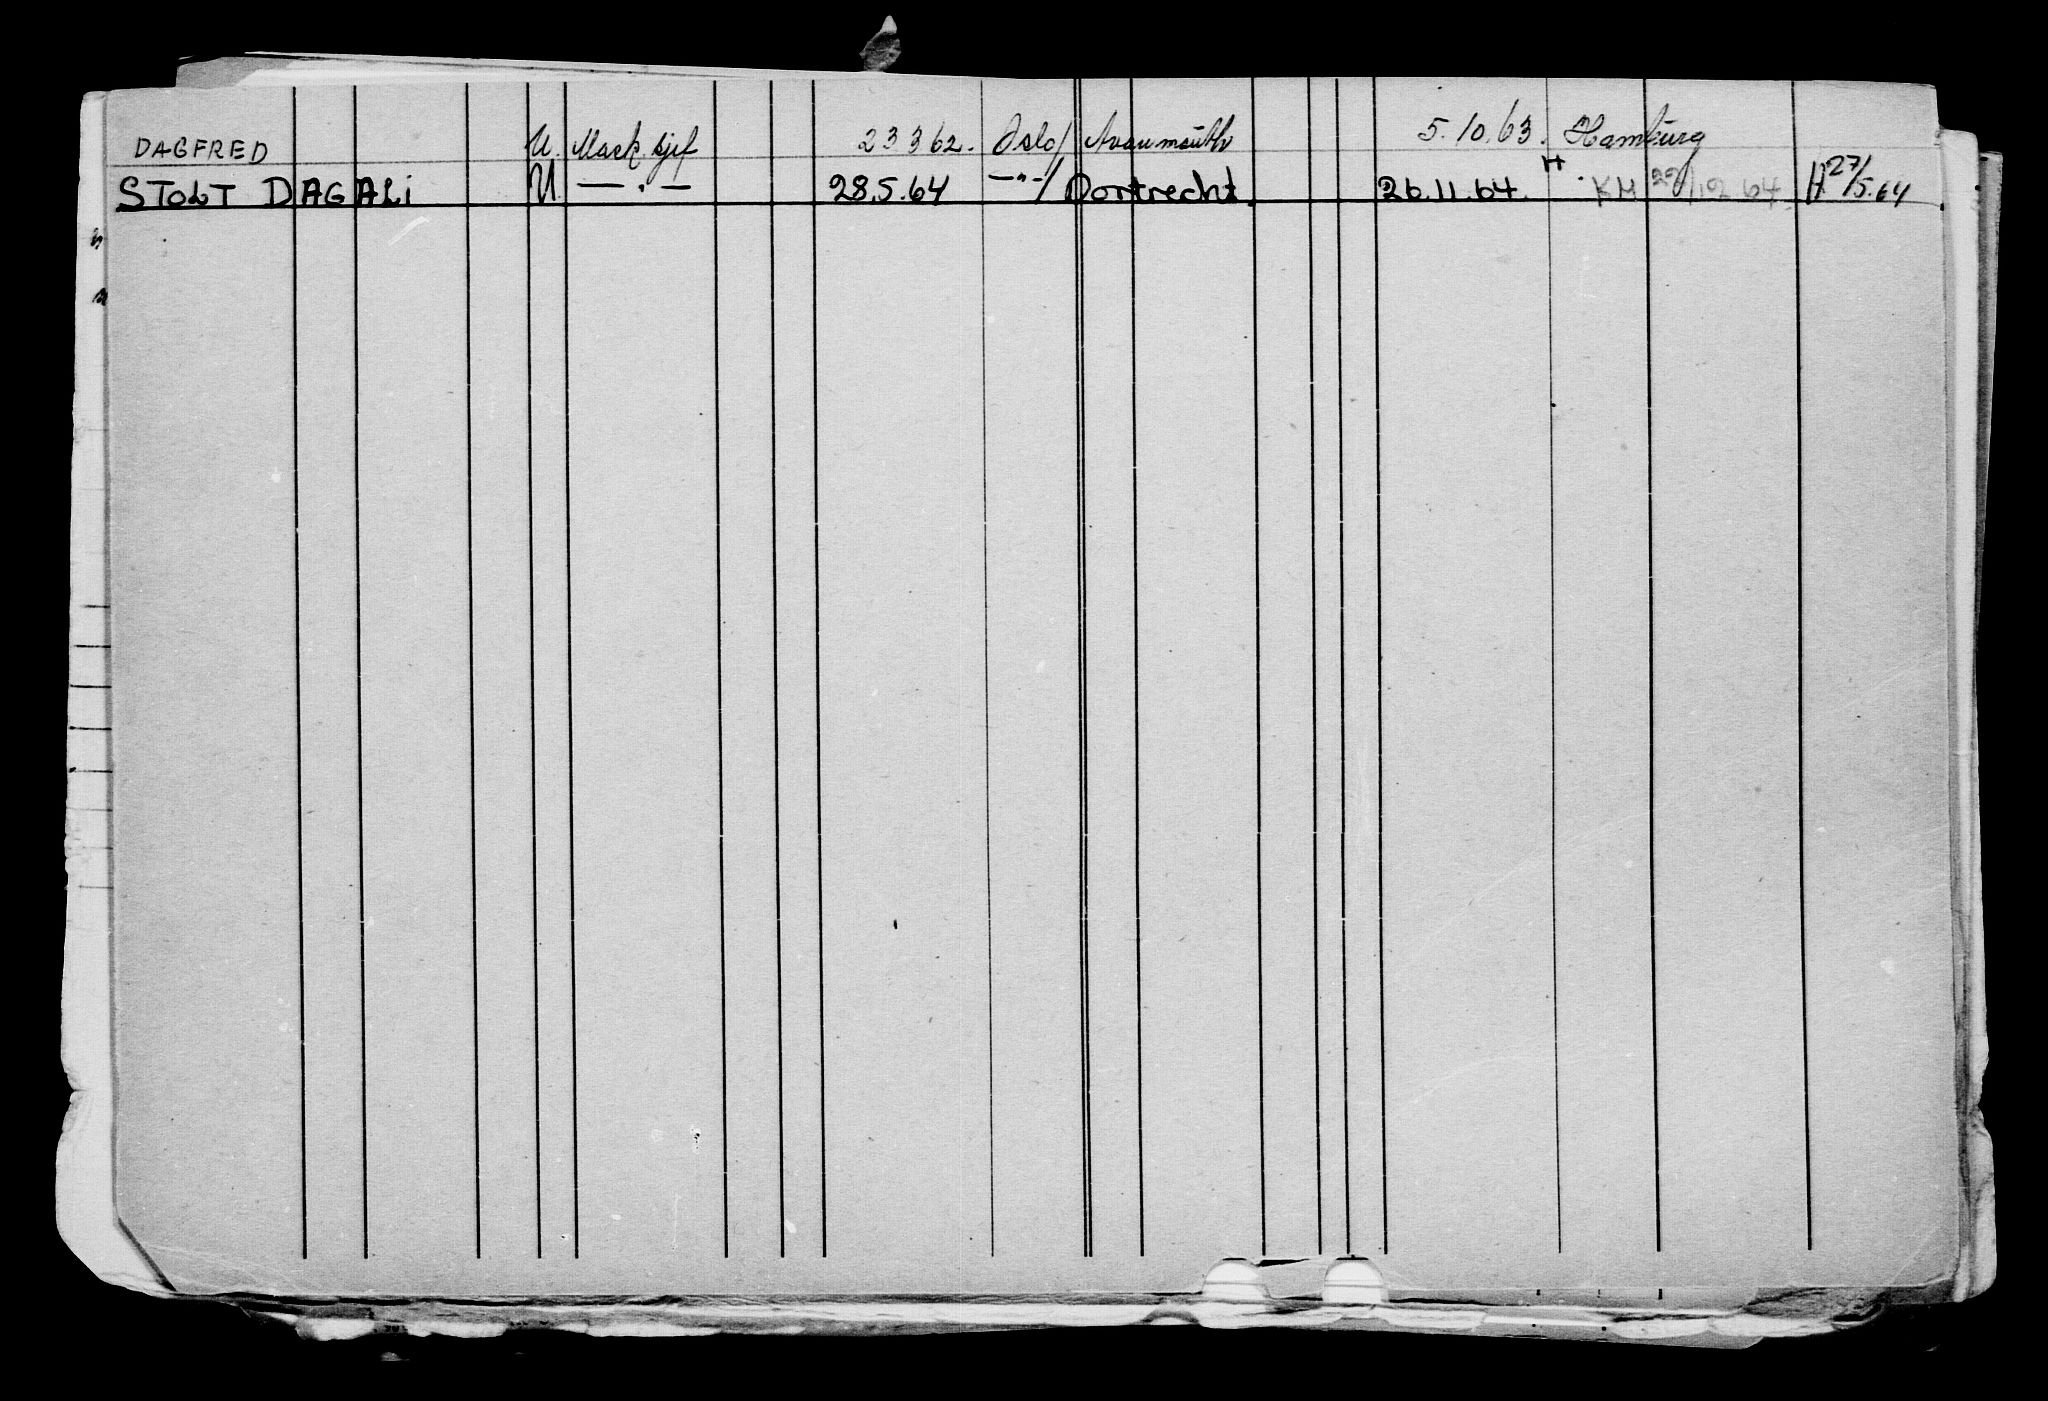 DAGFRED U. Mask. sjef 23 3 62. Oslo / Avonmouth 5.10.63. Hamburg
STOLT DAGALI U — " — 28.5.64 — " — / Dortrecht. 26.11.64. H KM /12 64. H 27/5.64